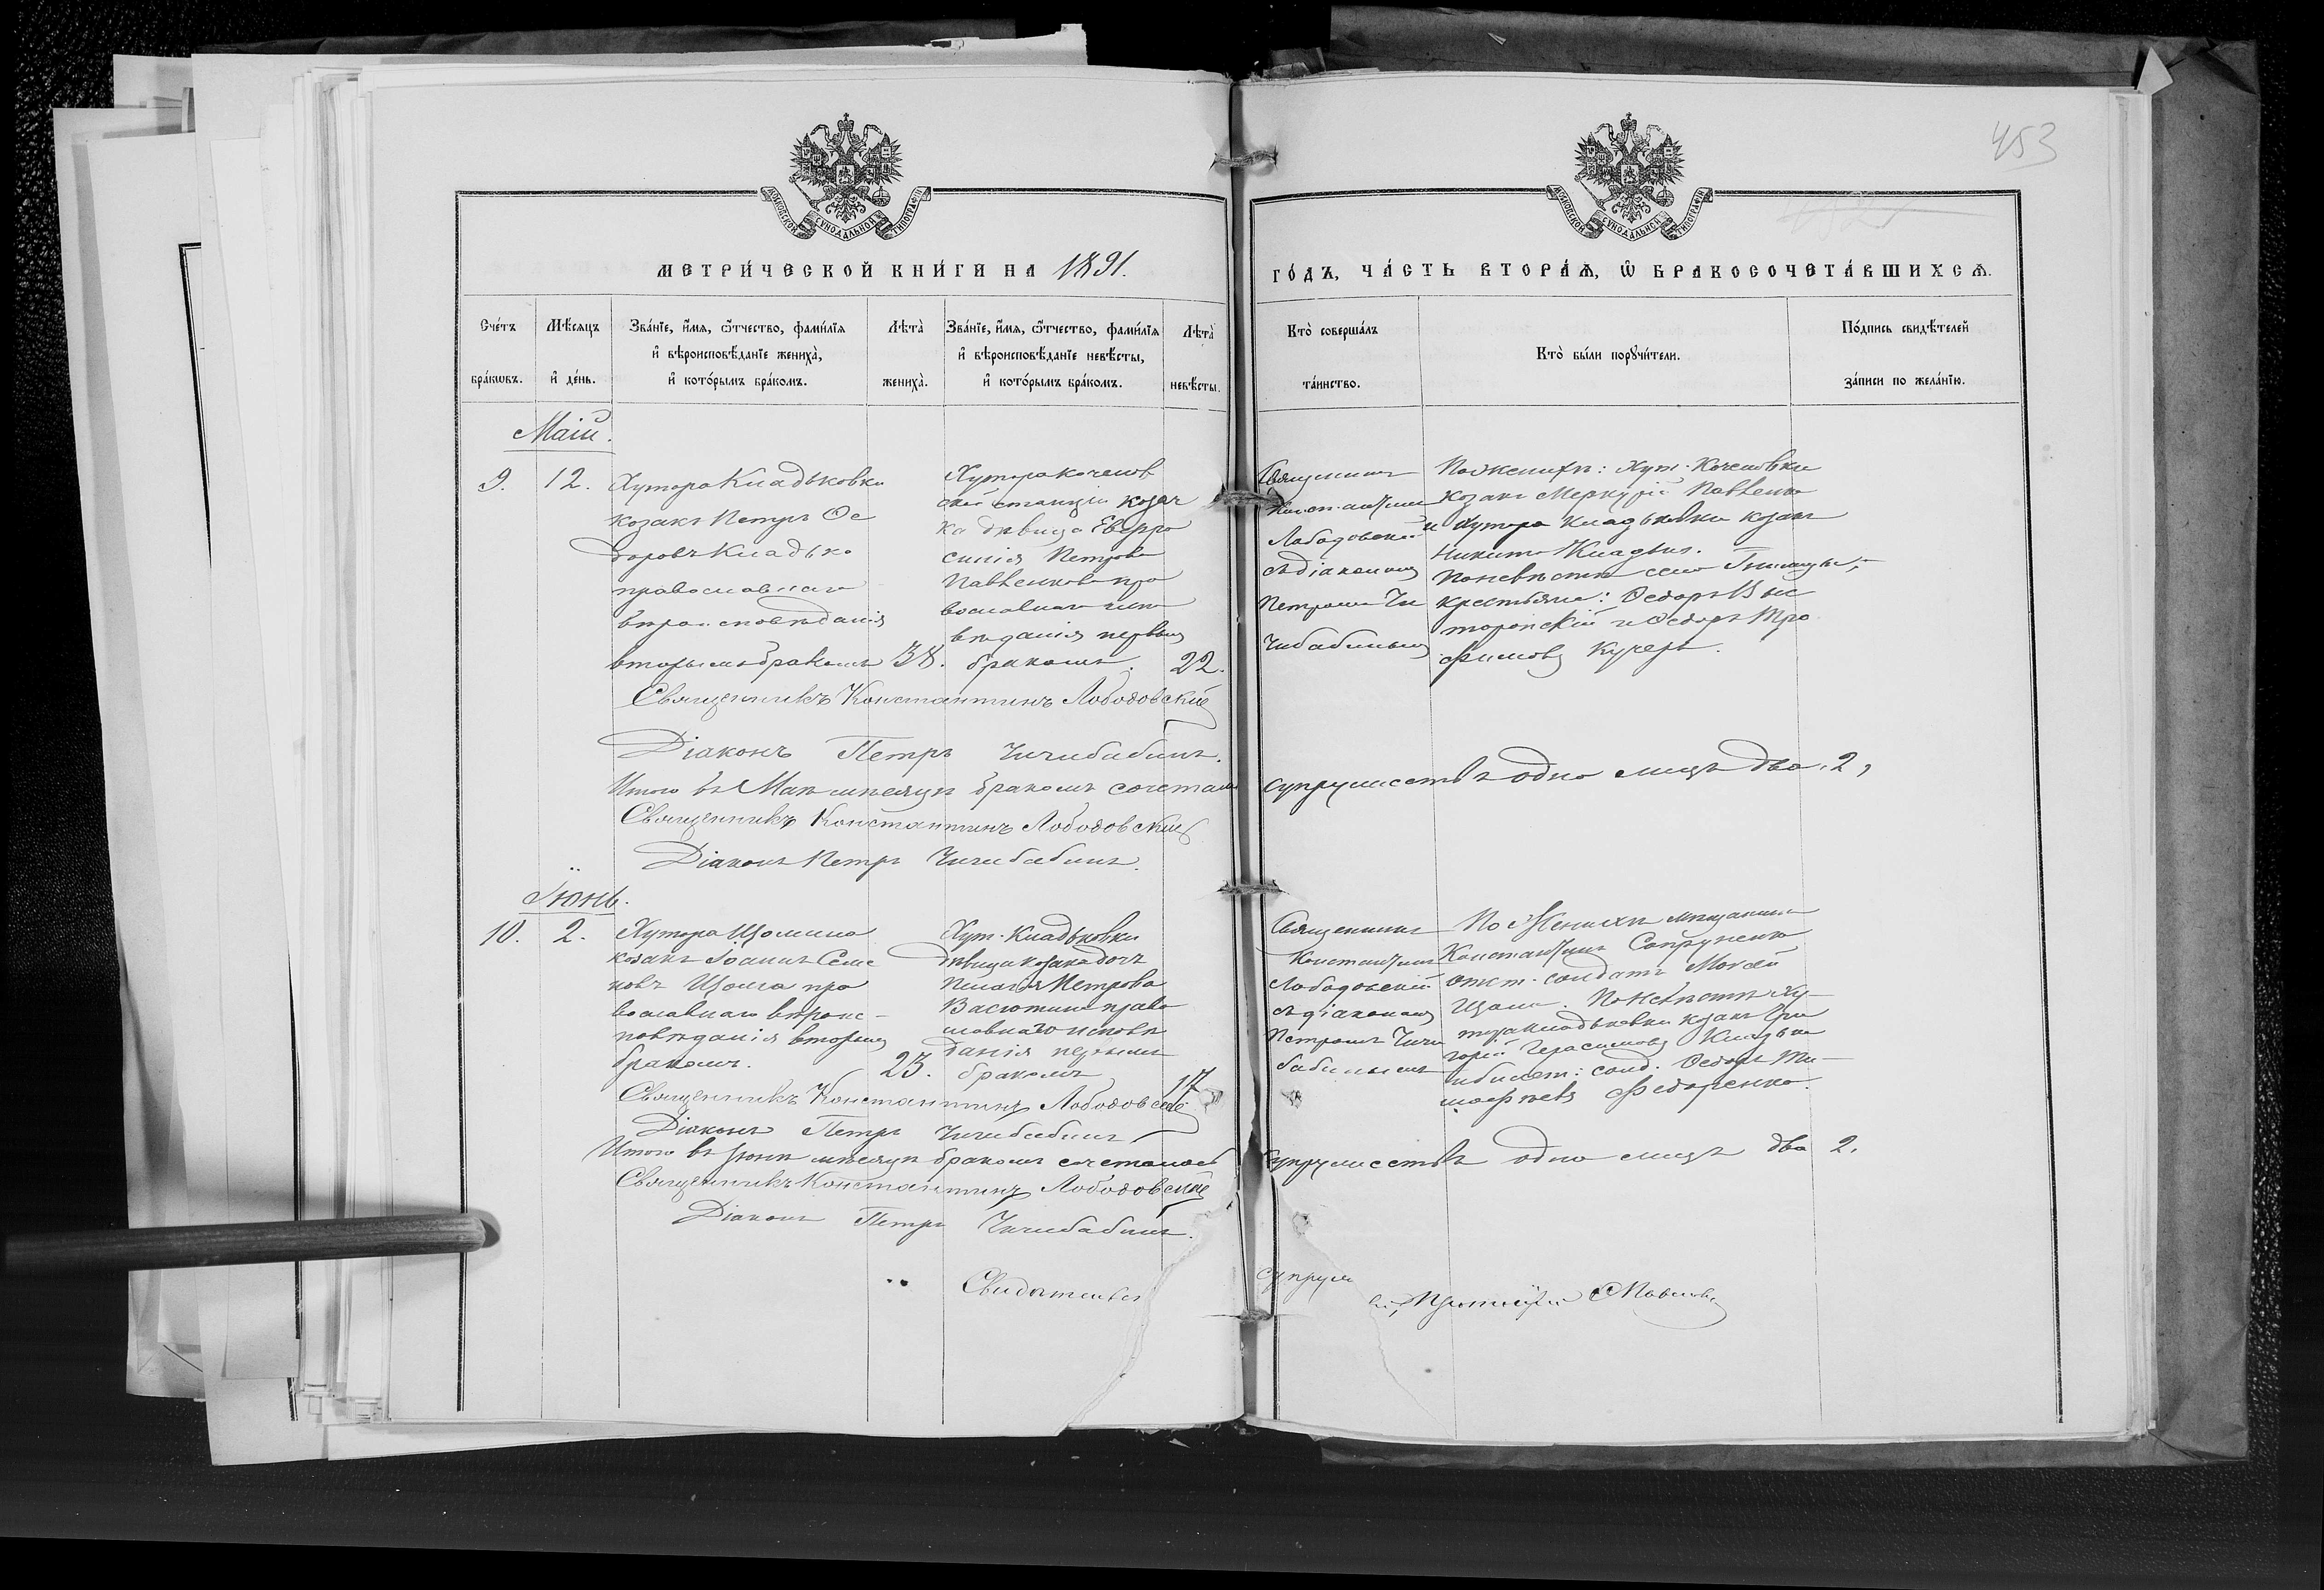 453
МОСКОВСКОЙ СѴНОДАЛЬНОЙ ТИПОГРАФІИ
МОСКОВСКОЙ СѴНОДАЛЬНОЙ ТИПОГРАФІИ
МЕТРИ́ЧЕСКОЙ КНИ́ГИ НА 1891.
ГО́ДЪ, ЧА́СТЬ ВТОРА́Ѧ, Ѽ БРАКОСОЧЕТА́ВШИХСѦ.
Сче́тъ бра́кѡвъ.
Мѣ́сяцъ и҆ де́нь.
Зва́нїе, и҆́мѧ, ѻ҆́тчество, фами́лїѧ
и҆ вѣроисповѣ́данїе жениха̀,
и҆ кото́рымъ бра́комъ.
Лѣта̀ жениха̀.
Зва́нїе, и҆́мѧ, ѻ҆́тчество, фами́лїѧ
и҆ вѣроисповѣ́данїе невѣ́сты,
и҆ кото́рымъ бра́комъ.
Лѣта̀ невѣ́сты.
Кто̀ соверша́лъ
та́инство.
Кто̀ бы́ли порꙋчи́тели.
По́дпись свидѣ́телей
за́писи по жела́нїю.
Маій.
9.
12.
Хутора Кладьковки
козакъ Петръ Ѳе
доровъ Кладько
православнаго
вѣроисповѣданія
вторымъ бракомъ
38.
Хутора Коченов
ской станціи козач
ка дѣвица Евфро
синія Петрова
Павленкова пра
вославнаго испо
вѣданія первымъ
бракомъ.
22.
Священникъ
Константинъ
Лободовскій
съ діакономъ
Петромъ Чи
чибабинымъ
По женихѣ: Хут. Коченовки
козакъ Меркурій Павленко
и Хутора Кладьковки козакъ
Никита Кладько.
По невѣстѣ село
крестьяне: Ѳедоръ Выс
торопскій и Ѳедоръ Тро
фимовъ Кучеръ.
Священникъ Константинъ Лободовскій
Діаконъ Петръ Чичибабинъ.
Итого въ Маѣ мѣсяцѣ бракомъ сочеталось
супружествъ одно лицъ два. 2,
Священникъ Константинъ Лободовскій
Діаконъ Петръ Чичибабинъ.
Іюнь.
10.
2.
Хутора Щомина
козакъ Іоаннъ Семе
новъ Щома пра
вославнаго вѣроис-
повѣданія вторымъ
бракомъ.
23.
Хут. Кладьковки
дѣвица козака дочь
Пелагія Петрова
Васютина право
славнаго исповѣ
данія первымъ
бракомъ
17
Священникъ
Константинъ
Лободовскій
съ діакономъ
Петромъ Чичи
бабинымъ
По Женихѣ мѣщанинъ
Константинъ Сопруненко
отст. солдатъ Моисей
Щома. По Невѣстѣ Ху-
тора Кладьковки козакъ Гри
горій Герасимовъ Кладько
и билет: солд. Ѳедоръ Ти-
моѳеевъ Ѳедоренко.
Священникъ Константинъ Лободовскій
Діаконъ Петръ Чичибабинъ
Итого въ Іюнѣ мѣсяцѣ бракомъ сочеталось
Супружествъ одно лицъ два 2.
Священникъ Константинъ Лободовскій
Діаконъ Петръ Чичибабинъ.